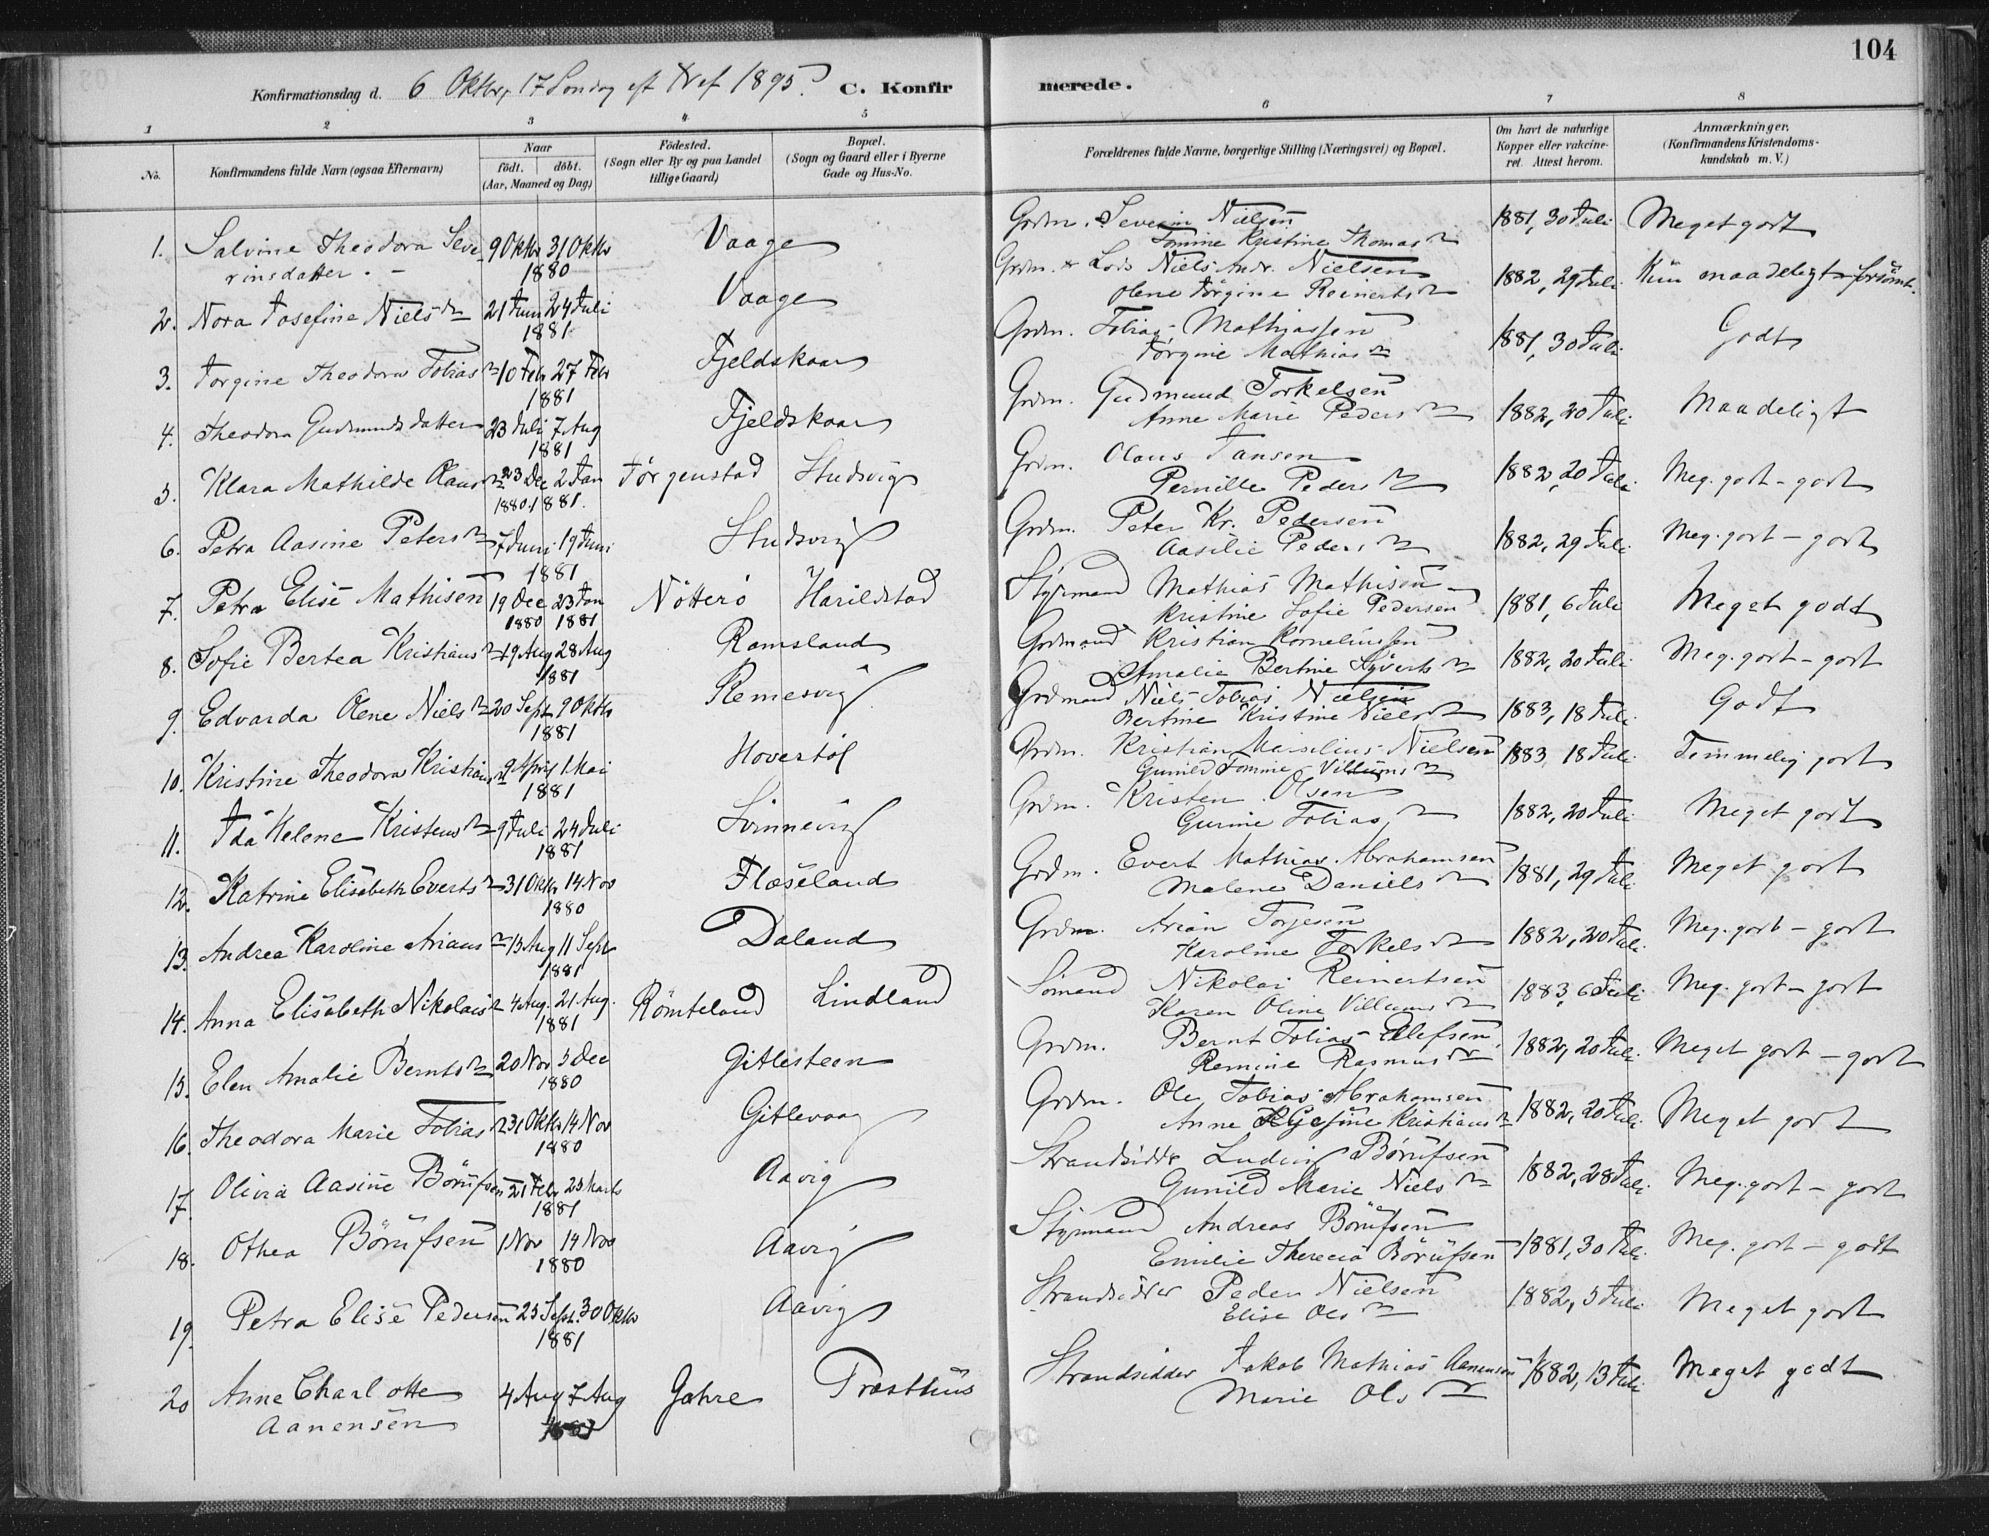 104
Konfirmationsdag d. 6 Oktbr, 17 Søndag eft Tref 1895. C. Konfirmerede.
1 2 3 4 5 6 7 8
No.
Konfirmandens fulde Navn (ogsaa Efternavn)
Naar
födt. döbt.
(Aar, Maaned og Dag)
Födested.
(Sogn eller By og paa Landet
tillige Gaard)
Bopæl.
(Sogn og Gaard eller i Byerne
Gade og Hus-No.
Forældrenes fulde Navne, borgerlige Stilling (Næringsvei) og Bopæl.
Om havt de naturlige
Kopper eller vakcine-
ret. Attest herom.
Anmærkninger.
(Konfirmandens Kristendoms-
kundskab m. V.)
1. Salvine Theodora Seve- 9 Oktbr 31 Oktbr Vaage Grdm. Severin Nielsen 1881, 30 Juli Meget godt
rinsdatter. - 1880 Tomine Kristine Thomasdr
2. Nora Josefine Nielsdr 21 Juni 24 Juli Vaage Grdm. & Lods Niels Andr. Nielsen 1882, 29 Juli Kun maadeligt - forsömt.
1881 Olene Jörgine Reinertsdr
3. Jorgine Theodora Tobiasdr 10 Febr 27 Febr Fjeldskaar Grdm. Tobias Mathiassen 1881, 30 Juli Godt
1881 Jörgine Mathiasdr
4. Theodora Gudmundsdatter 23 Juli 7 Aug Fjeldskaar Grdm. Gudmund Torkelsen 1882, 20 Juli Maadeligt
1881 Anne Marie Pedersdr
5. Klara Mathilde Olausdr 23 Dec 2 Jan Jörgenstad Studsvig Grdm. Olaus Jansen 1882, 20 Juli Meg. godt - godt
1880. 1881. Pernille Pedersdr
6. Petra Aasine Petersdr 7 Juni 19 Juni Studsvig Grdm. Peter Kr. Pedersen 1882, 29 Juli Meg. godt - godt
1881 Aasilie Pedersdr
7. Petra Elise Mathisen 19 Dec 23 Jan Nötterö Harildstad Styrmand Mathias Mathisen 1881, 6 Juli Meget godt
1880 1881 Kristine Sofie Pedersen
8. Sofie Bertea Kristiansdr 19 Aug 28 Aug Ramsland Grdmand Kristian Kornelinssen 1882, 20 Juli Meg. godt - godt
1881 Amalie Bertine Syvertsdr
9. Edvarda Olene Nielsdr 20 Sept 9 Oktbr Remesvig Grdmand Niels Tobias Nielsen 1883, 18 Juli Godt
1881 Bertine Kristine Nielsdr
10. Kristine Theodora Kristiansdr 9 April 1 Mai Hovestöl Grdm. Kristian Marselius Nielsen 1883, 18 Juli Temmelig godt
1881 Gunild Tomine Villumsdr
11. Ida Helene Kristensdr 9 Juli 24 Juli Svinnevig Grdm. Kristen Olsen 1882, 20 Juli Meget godt
1881 Gurine Tobiasdr
12. Katrine Elisabeth Evertsdr 31 Oktbr 14 Nov Flaseland Grdm. Evert Mathias Abrahamsen 1881, 29 Juli Meget godt
1880 Malene Danielsdr
13. Andrea Karoline Ariansdr 13 Aug 11 Sept Daland Grdm. Arian Torjesen 1882, 20 Juli. Meg. godt - godt
1881 Karoline Torkelsdr
14. Anna Elisabeth Nikolaisdr 4 Aug. 21 Aug. Römteland Lindland Sömand Nikolai Reinertsen 1883, 6 Juli Meg. godt - godt
1881 Karen Oline Villumsdr
15. Elen Amalie Berntsdr 20 Nov 5 Dec Gitlesteen Grdm. Bernt Tobias Ellefsen 1882, 20 Juli. Meget godt - godt
1880 Remine Rasmusdr
16. Theodora Marie Tobiasdr 31 Oktbr 14 Nov Gitlevaag Grdm. Ole Tobias Abrahamsen 1882, 20 Juli. Meget godt
1880 Anne Gesine Kristiansdr
17. Olivia Aasine Börufsen 21 Febr 25 Marts Aavig Strandsidder Ludvig Börufsen 1882, 28 Juli. Meg. godt - godt
1881 Gunild Marie Nielsdr
18. Othea Börufsen 1 Nov 14 Nov Aavig Styrmand Andreas Börufsen 1881, 30 Juli. Meg. godt - godt
1880 Emilie Therecia Börufsen
19. Petra Elise Pedersen 25 Sept. 30 Oktbr Aavig Strandsidder Peder Nielsen 1882, 5 Juli Meget godt
1881 Elise Olsdr
20 Anne Charlotte 4 Aug 7 Aug Gahre Trosthus Strandsidder Jakob Mathias Aanensen 1882, 13 Juli Meget godt
Aanensen Marie Olsdr